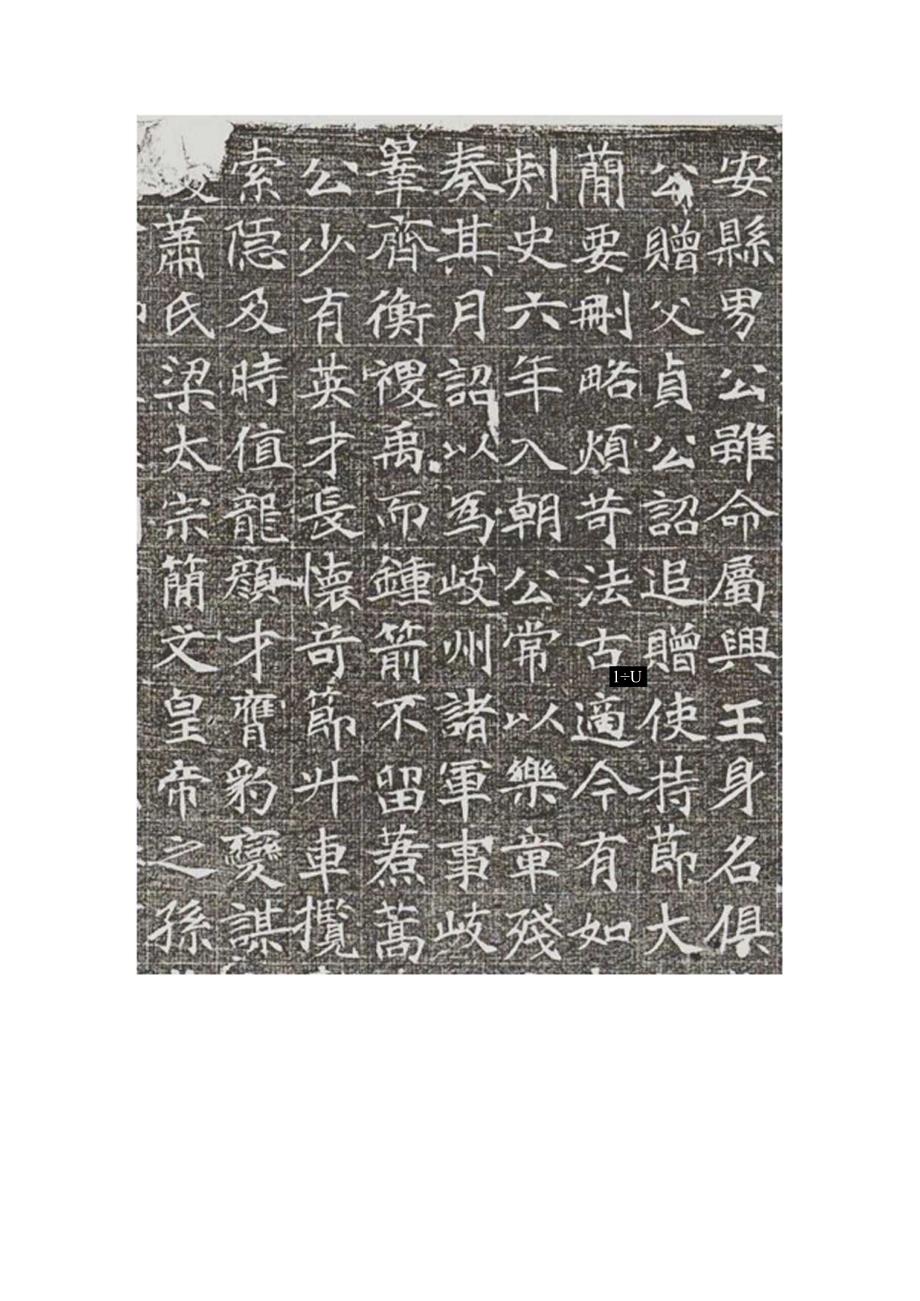 安縣男公雖命屬興王身名俱
公贈父貞公詔追贈使持節大
蕳要刪略煩苛法古適今有如
刺史六年入朝公常以樂章殘
奏其月詔以爲岐州諸軍事岐
肇齊衡禝禹而鍾箭不留焄蒿
公少有英才長懷奇節升車攬
索隱及時值龍顏才膺豹變謀
蕭氏梁太宗簡文皇帝之孫
1÷U